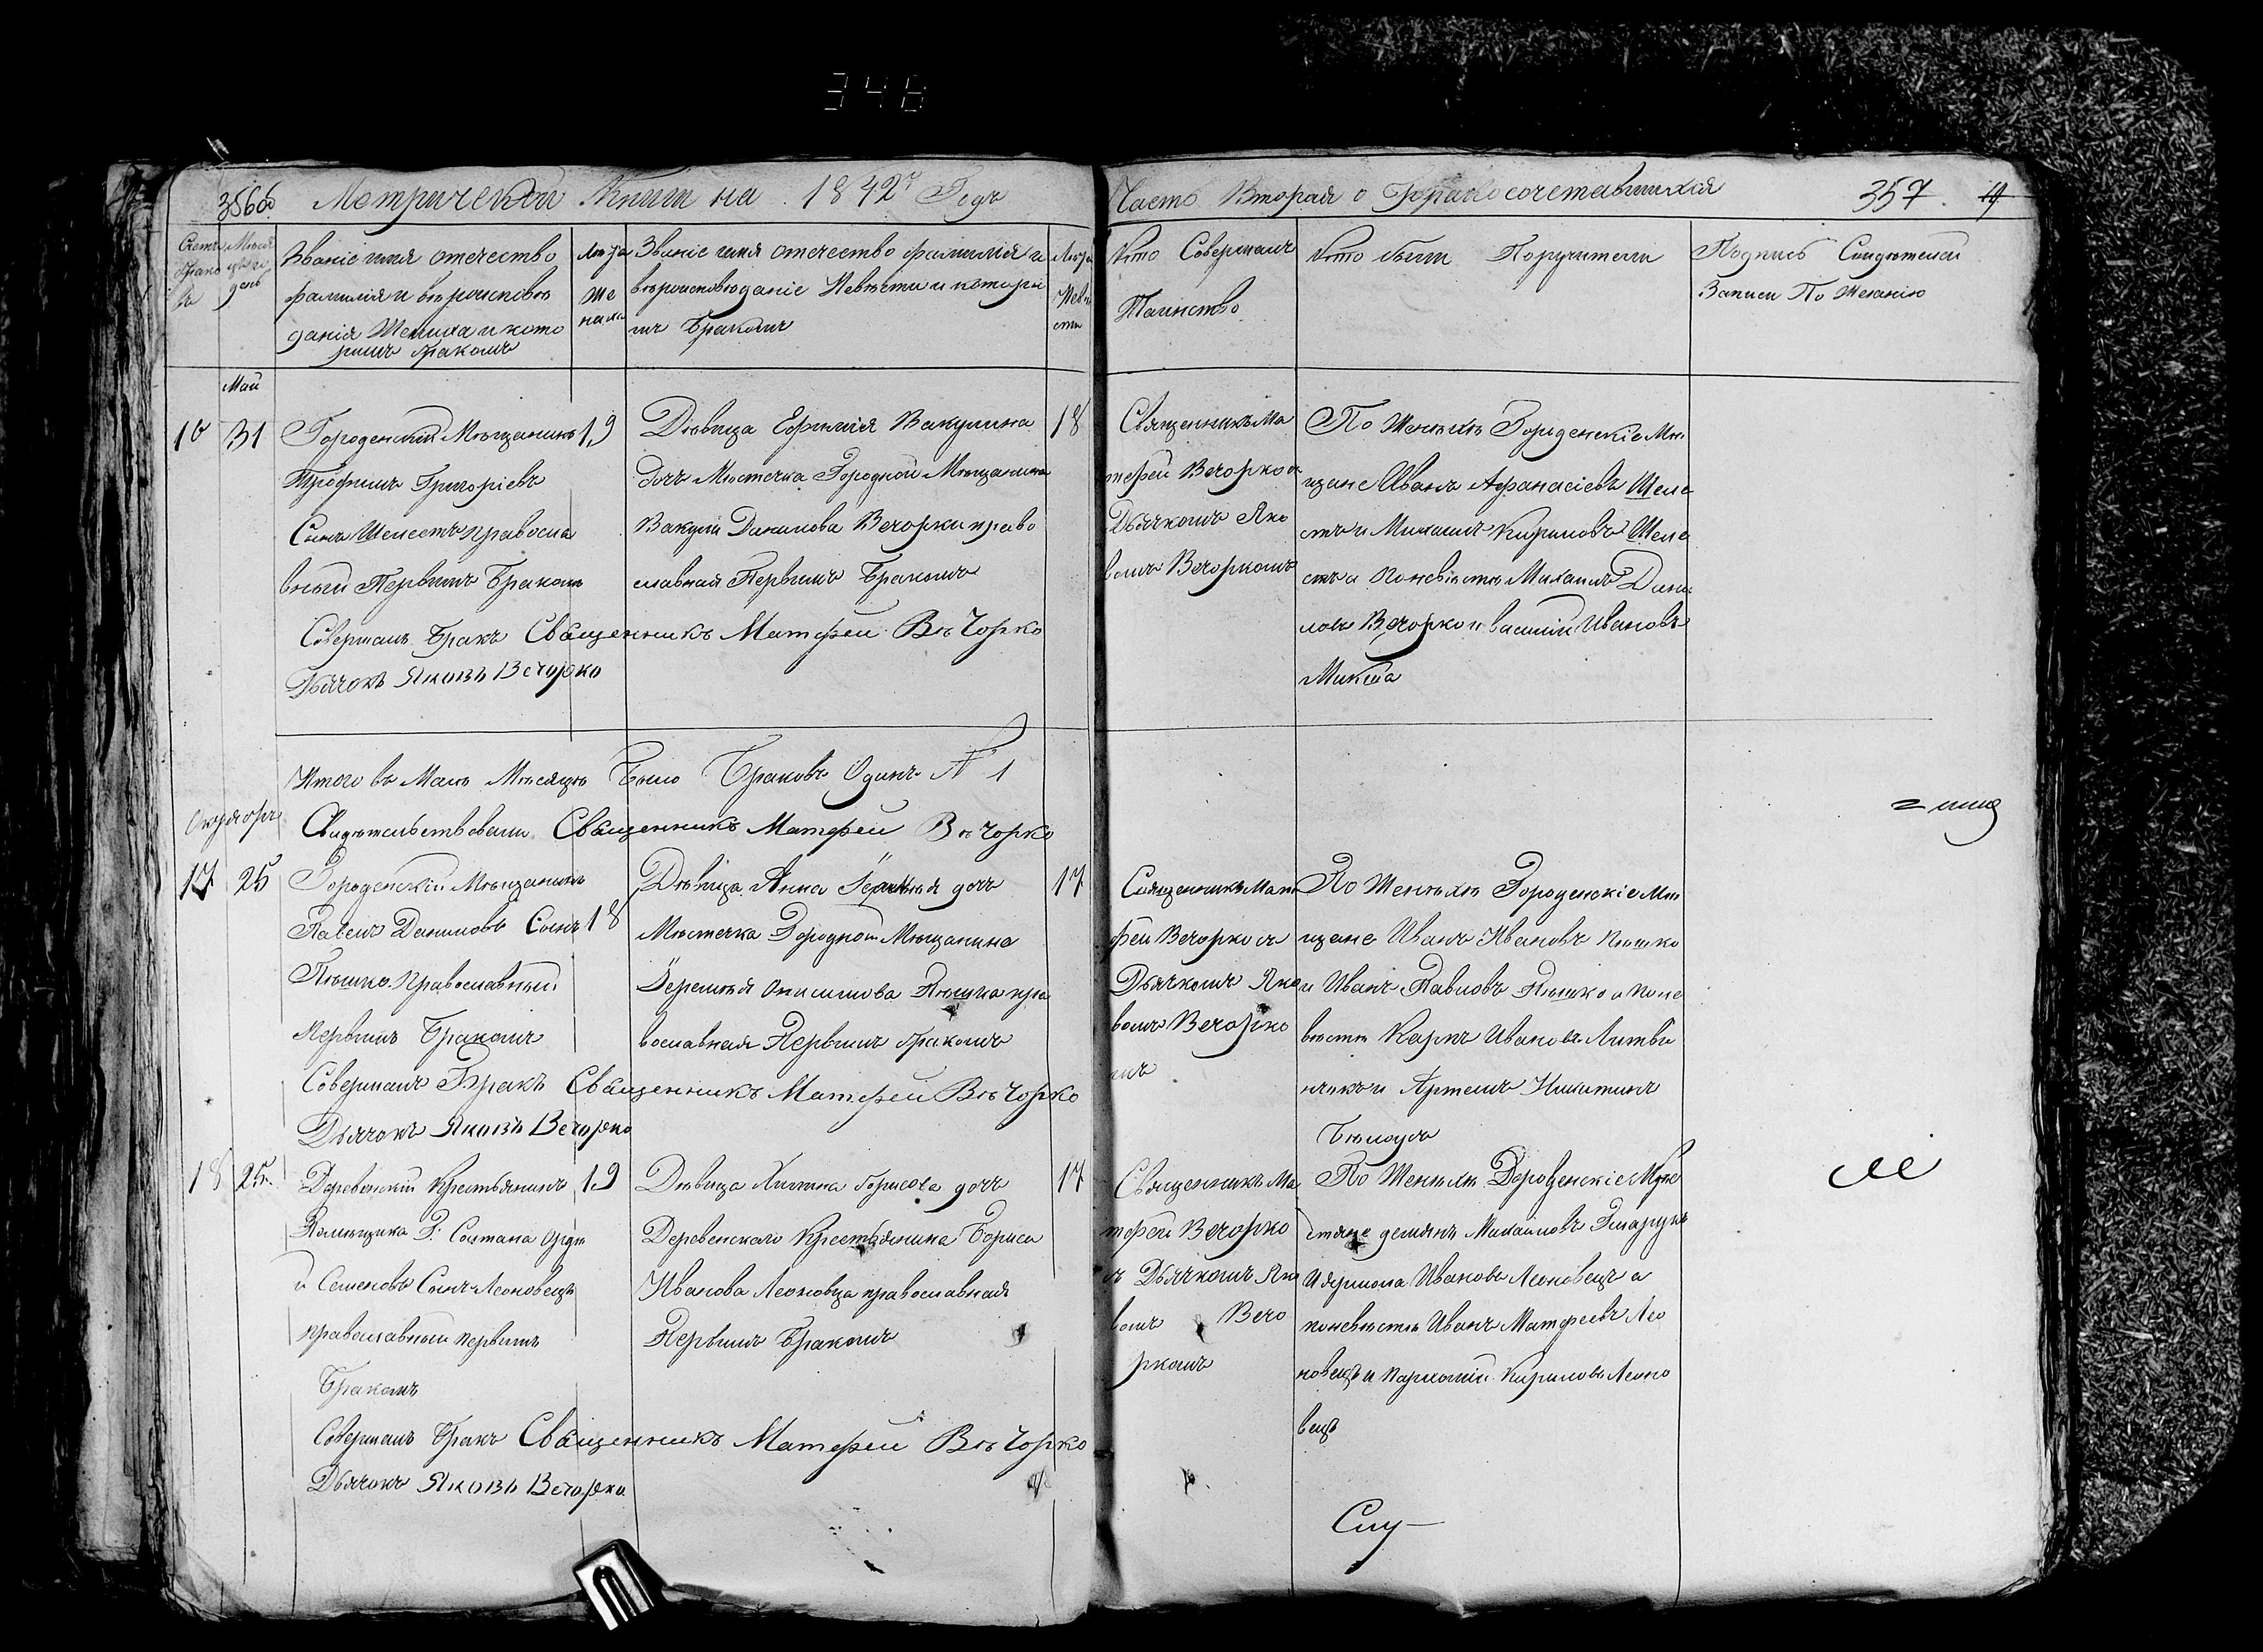 348
356об Метрической Книги на 1842й Годъ
Часть Вторая о Бракосочетавшихся 357.
Счетъ Брако въ
Мѣсяцъ и день
Званіе имя отечество
фамилія и вѣроисповѣ
данія Жениха и кото
рымъ бракомъ
Лѣта
Же
ниха
Званіе имя отечество фамилія и
вѣроисповѣданіе Невѣсты и которы
мъ Бракомъ
Лѣта
Невѣ
сты
Кто Совершалъ
Таинство
Кто были Поручители
Подпись Свидѣтелей
Записи По Желанію
Май
16 31
Городенскій Мѣщанинъ
Трофимъ Григоріевъ
Сынъ Шелестъ православ
вный Первымъ Бракомъ
19
Дѣвица Евфимія Вакулина
дочь Мѣстечка Городной Мѣщанина
Вакулы Данилова Вечорки право
славная Первымъ Бракомъ
18
Священникъ Ма
тфей Вечорко съ
Дьячкомъ Яко
вомъ Вечоркомъ
По Женихѣ Городенскіе Мѣ
щане Иванъ Афанасіевъ Шеле
стъ и Михаилъ Кириловъ Шеле
стъ а по невѣстѣ Михаилъ Дани
ловъ Вечорко и Василій Ивановъ
Микша
Совершалъ Бракъ Священникъ Матфей Вѣчорко
Дьячокъ Яковъ Вечорко
Итого въ Маѣ Мѣсяцѣ Было Браковъ Одинъ № 1
Свидѣтельствовали Священникъ Матфей Вѣчорко
Октябрь
17 25
Городенскій Мѣщанинъ
Павелъ Даниловъ Сынъ
Пѣшко Православный
Первымъ Бракомъ
18
Дѣвица Анна Іеремѣя дочь
Мѣстечка Городной Мѣщанина
Іеремѣя Онисимова Пѣшка пра
вославная Первымъ бракомъ
17
Священникъ Мат
фей Вечорко съ
Дьячкомъ Яко
вомъ Вечорко
мъ
По Женихѣ Городенскіе Мѣ
щане Иванъ Ивановъ Пѣшко
и Иванъ Павловъ Пѣшко а по не
вѣстѣ Карпъ Ивановъ Литви
нчукъ и Артемъ Никитинъ
Бѣлоусъ
Совершалъ Бракъ Священникъ Матфей Вѣчорко
Дьячокъ Яковъ Вечорко
18 25
Деревенскій Крестьянинъ
Помѣщика
Семеновъ Сынъ Леоновецъ
православный первымъ
Бракомъ
19
Дѣвица Борисова дочь
Деревенскаго Крестьянина Бориса
Иванова Леоновца православная
Первымъ Бракомъ
17
Священникъ Ма
тфей Вечорко
съ Дьячкомъ Яко
вомъ Вечо
ркомъ
По Женихѣ Деревенскіе Кре
стяне Демянъ Михайловъ
Иванова Леоновецъ а
по невѣстѣ Иванъ Матфеевъ Лео
новецъ и Пархомій Кириловъ Леоно
вецъ
Совершалъ Бракъ Священникъ Матфей Вѣчорко
Дьячокъ Яковъ Вечорко